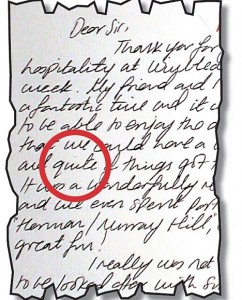 Dear Sir,
Thank you for
hospitality at
week. My friend and I
a fantastic time and it w
to be able to enjoy the a
that we could have a
and quite things got
It was a wonderfully re
and we even spent part
"Henman / Murray Hill",
great fun.
I really was not
to be looked after with su